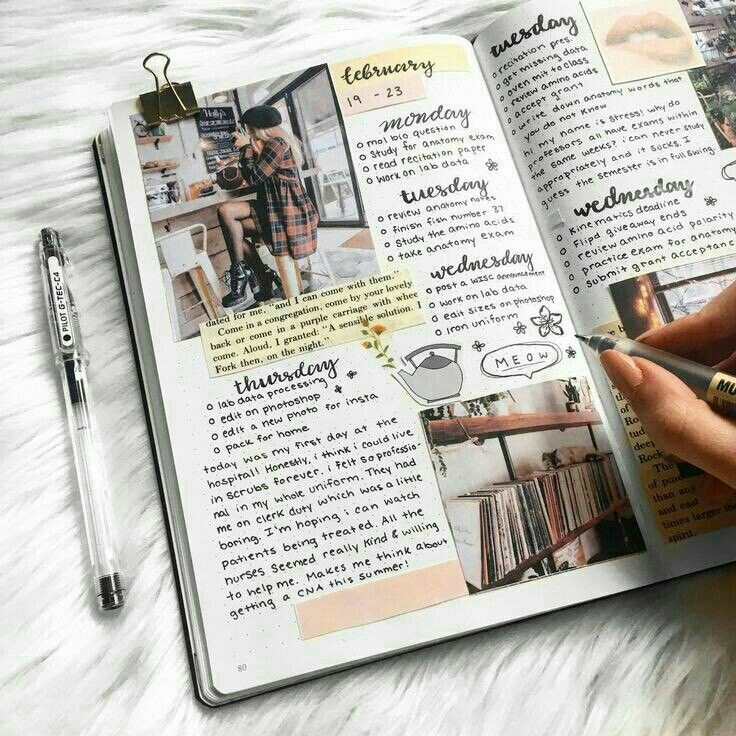 february
19 - 23
monday
o mol bio question
o study for anatomy exam
o read recitation paper
o work on lab data
tuesday
o review anatomy notes
o finish fish number 37
o study the amino acids
o take anatomy exam
wednesday
o post a WISC announcement
o work on lab data
o edit sizes on photoshop
o iron uniform
MEOW
dated for me, "and I can come with them."
Come in a congregation, come by your lovely
back or come in a purple carriage with whee
come. Aloud, I granted: "A sensible solution.
Fork then, on the night."
thursday
o lab data processing
o edit on photoshop
o edit a new photo for insta
o pack for home
today was my first day at the
hospital! Honestly, i think i could live
in scrubs forever. i felt so professio-
nal in my whole uniform. They had
me on clerk duty which was a little
boring. I'm hoping i can watch
patients being treated. All the
nurses seemed really kind & willing
to help me. Makes me think about
getting a CNA this summer!
80
tuesday
o recitation pres.
o get missing data
o oven mit to class
o review amino acids
o accept grant
o write down anatomy words that
you do not know
hi my name is stress! why do
professors all have exams within
the same weeks? i can never study
appropriately and it sucks. i
guess the semester is in full swing.
wednesday
o Kinematics deadline
o Flipd giveaway ends
o review amino acid polarity
o practice exam for anatomy
o submit grant acceptance
deep
Rock
of
than any
and east
times larger
spirit.
PILOT G-TEC-C4
MU